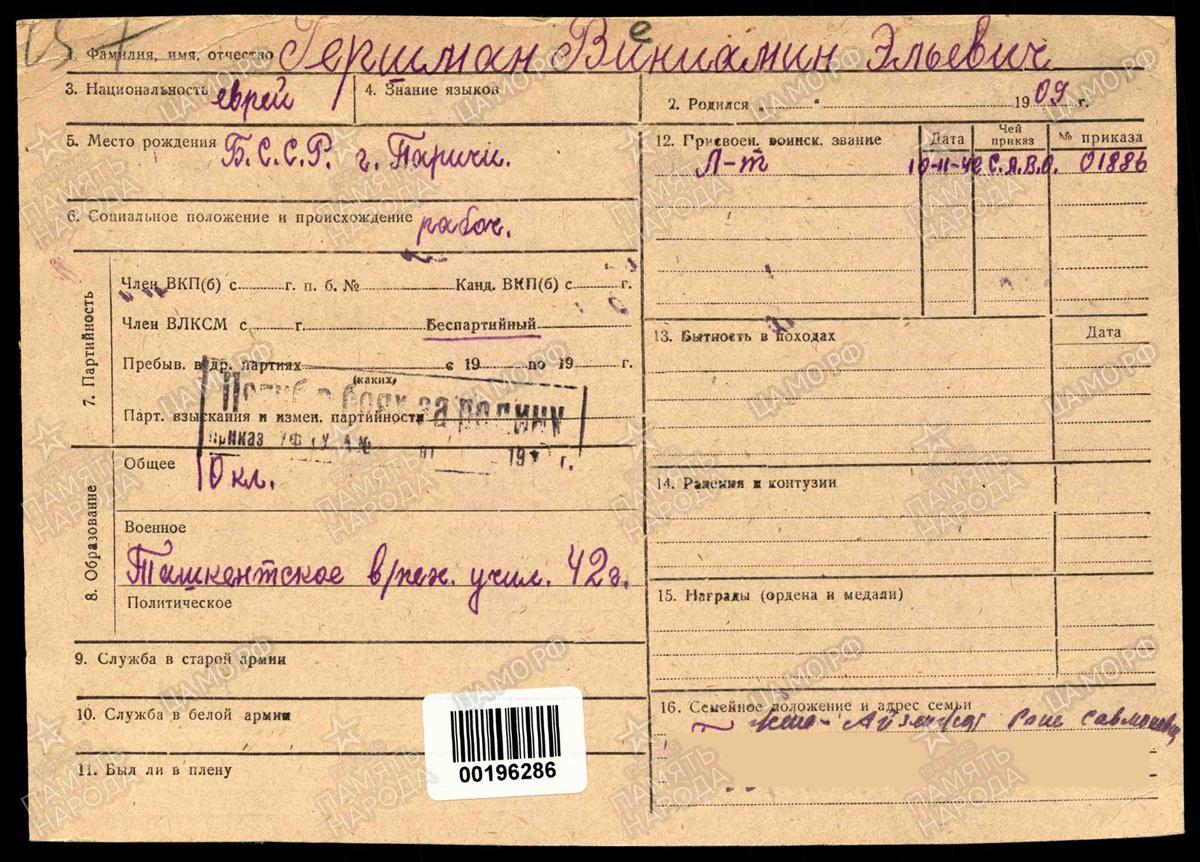 1. Фамилия, имя, отчество Гершман Вениамин Эльевич
3. Национальность еврей
4. Знание языков
2. Родился „ “ 1909 г.
5. Место рождения Б.С.С.Р. г. Паричи.
6. Социальное положение и происхождение рабоч.
7. Партийность
Член ВКП(б) с г. п. б. № Канд. ВКП(б) с г.
Член ВЛКСМ с г. Беспартийный
Пребыв. в др. партиях с 19 по 19 г.
(каких)
Парт. взыскания и измен. партийности
Погиб в боях за родину
приказ № 19 г.
8. Образование
Общее 10 кл.
Военное
Ташкентское учил. 42г.
Политическое
9. Служба в старой армии
10. Служба в белой армии
11. Был ли в плену
12. Присвоен. воинск. звание Дата Чей приказ № приказа
Л-т 10-11-42 С.А.В.О. 01886
13. Бытность в походах Дата
14. Ранения и контузии
15. Награды (ордена и медали)
16. Семейное положение и адрес семьи
00196286
ПАМЯТЬ НАРОДА
ЦАМО.РФ